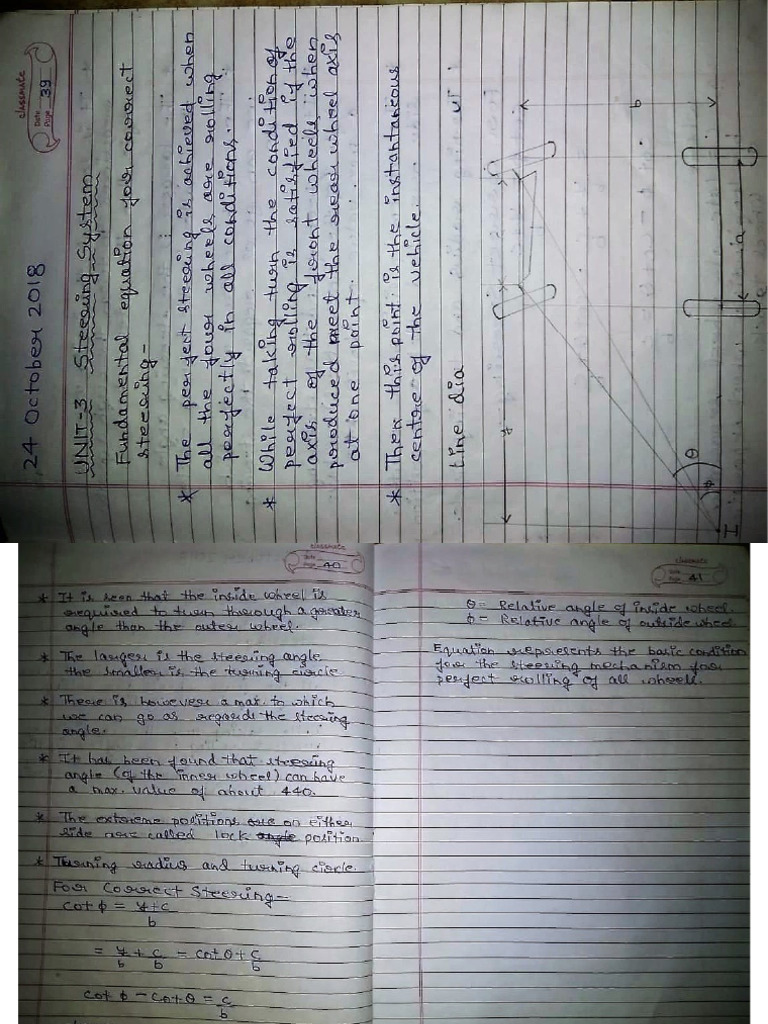 classmate
Date
Page 39
24 October 2018
UNIT-3 Steering System
Fundamental equation for correct
steering-
* The perfect steering is achieved when
all the four wheels are rolling
perfectly in all conditions.
* While taking turn the condition of
perfect rolling is satisfied if the
axis of the front wheels when
produced meet the rear wheel axis
at one point.
* Then this point is the instantaneous
centre of the vehicle.
Line dia
y
b
a
θ
φ
I
classmate
Date
Page 40
* It is seen that the inside wheel is
required to turn through a greater
angle than the outer wheel.
* The larger is the steering angle
the smaller is the turning circle
* There is however a max. to which
we can go as regards the steering
angle.
* It has been found that steering
angle (of the inner wheel) can have
a max. value of about 440.
* The extreme positions are on either
side are called lock angle position
* Turning radius and turning circle.
For Correct Steering-
Cot φ = y+c
b
= y + c = cot θ + c
b b b
Cot φ - Cot θ = c
b
classmate
Date
Page 41
θ = Relative angle of inside wheel.
φ = Relative angle of outside wheel
Equation represents the basic condition
for the steering mechanism for
perfect rolling of all wheels.